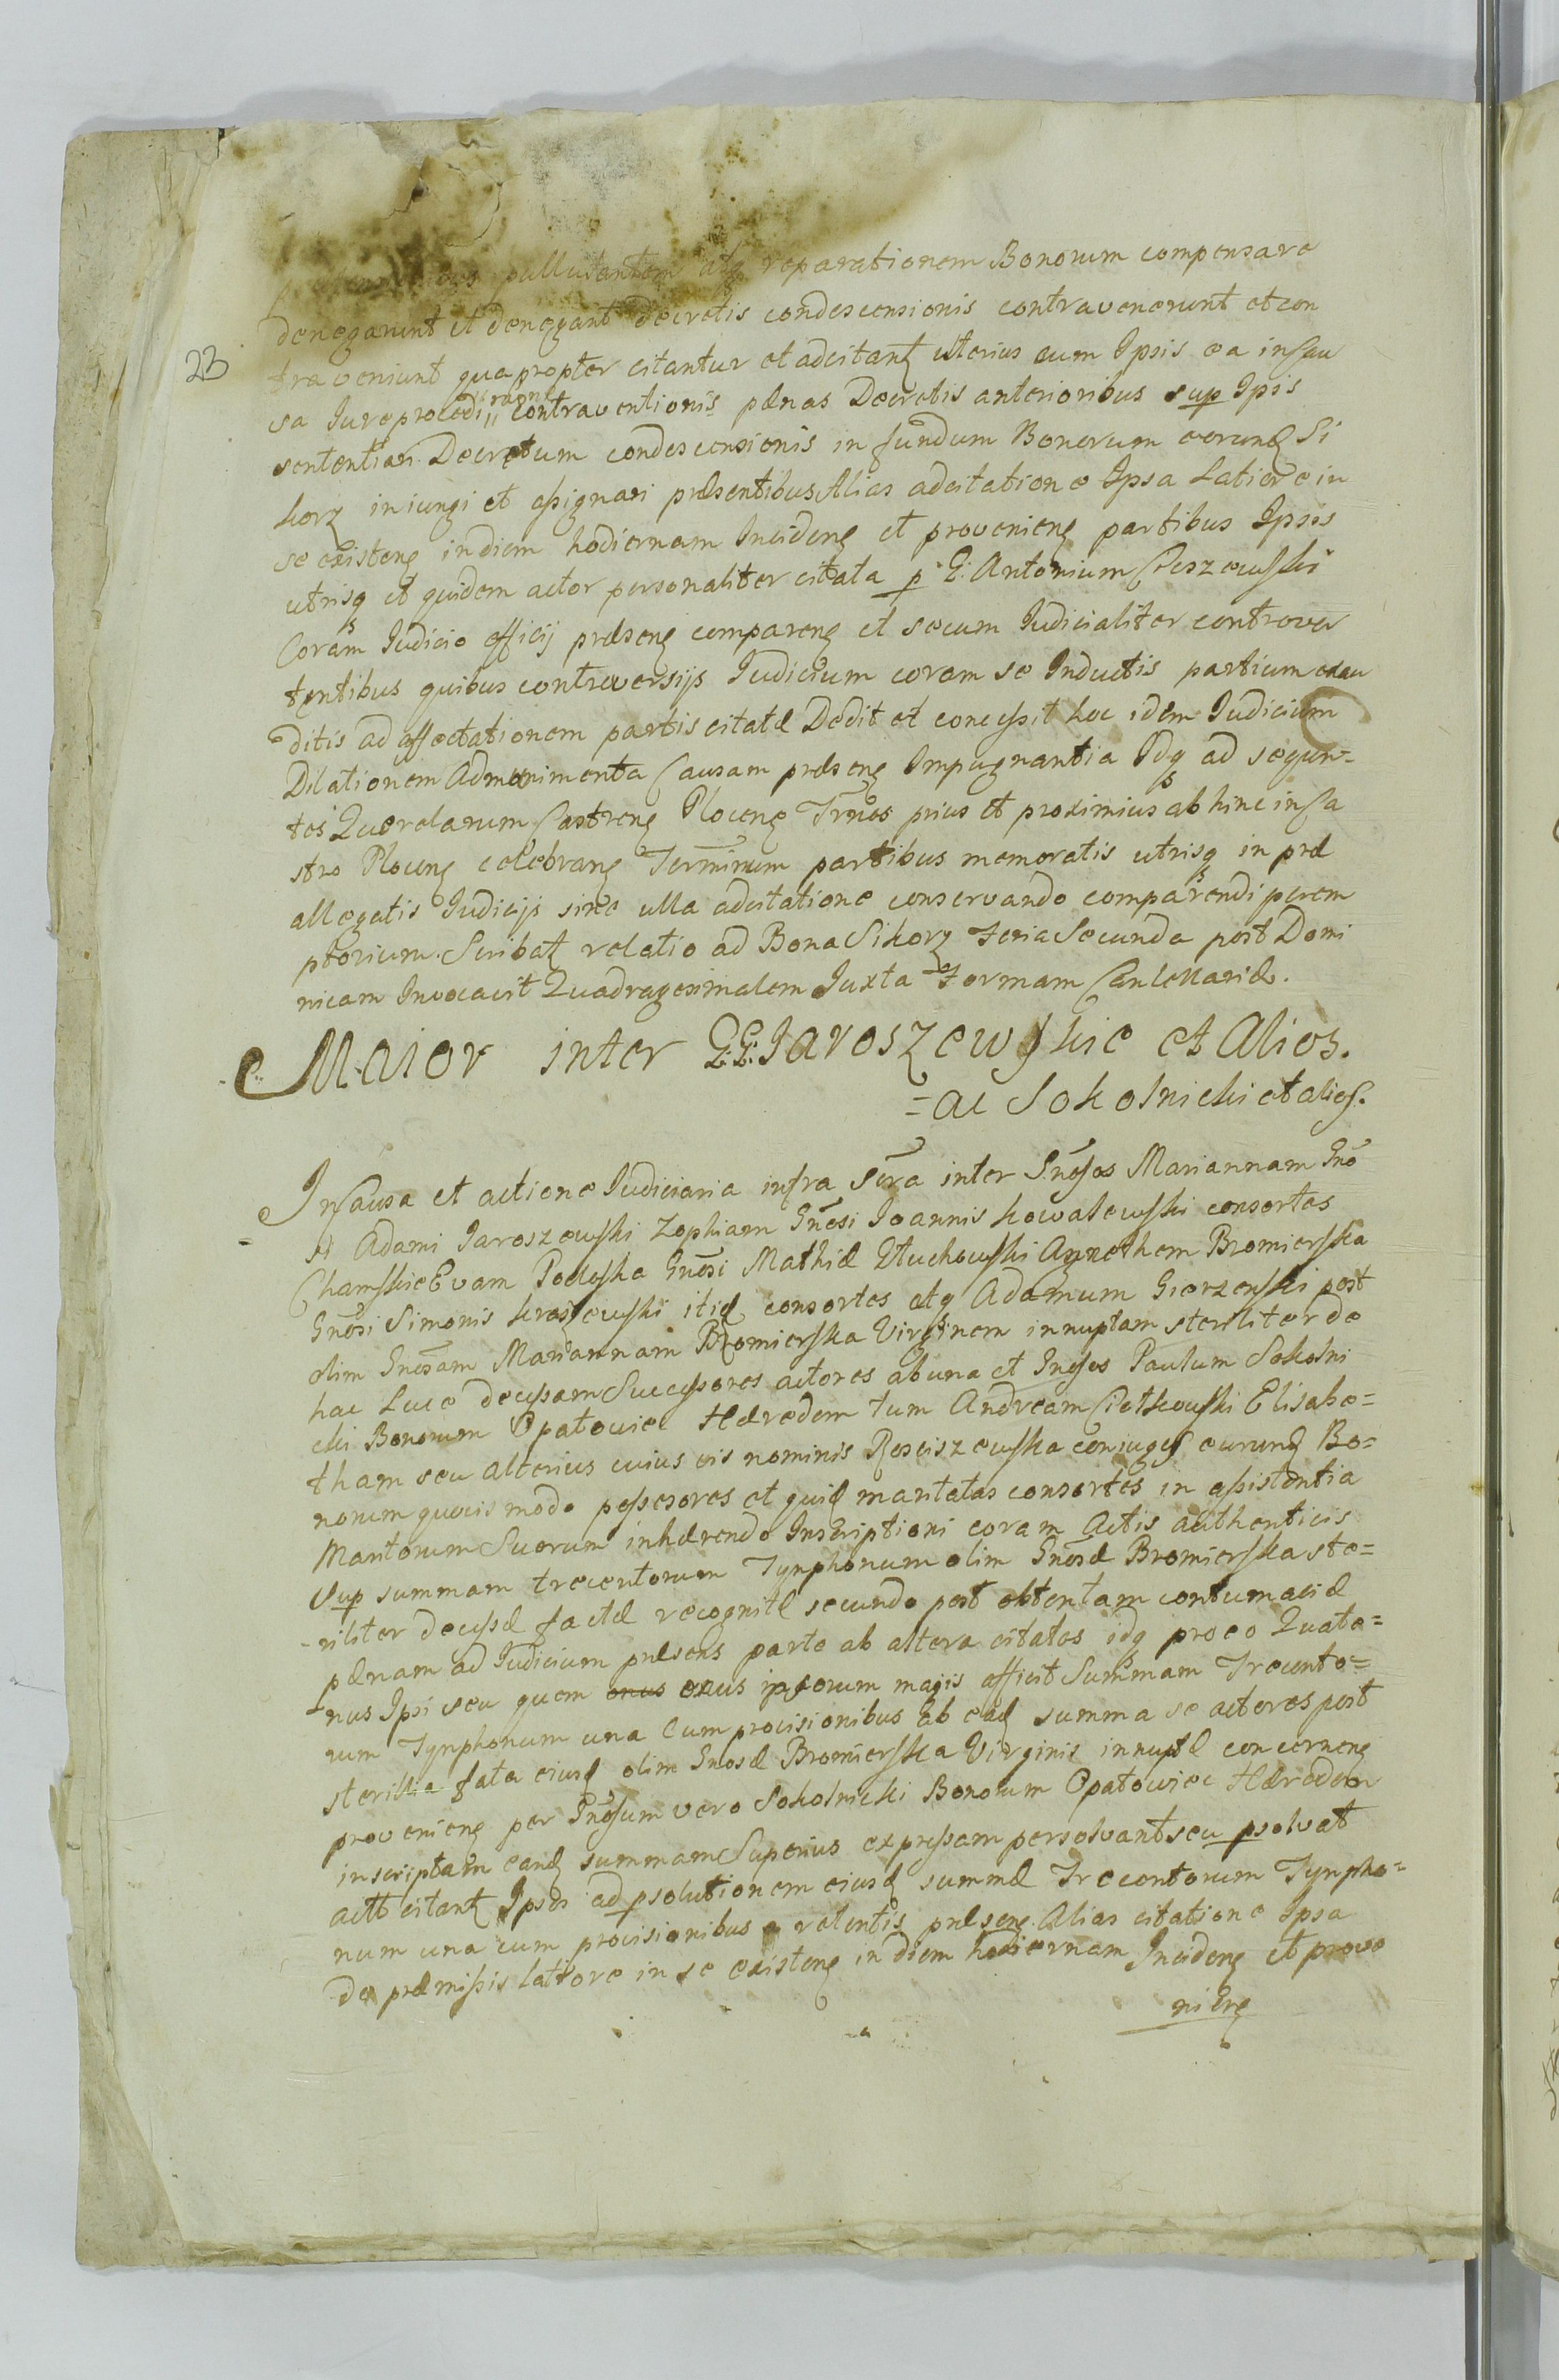 pullulantem atq reparationem Bonorum compensare
denegarunt et denegant Decretis condescensionis contravenerunt et con
23
traveniunt quapropter citantur et adcitantz ulterius cum Ipsis ea in Cau
sa Iure procedi contraventionis pænas Decretis anterioribus sup Ipis
sententiari Decretum condescensionis in fundum Bonorum eorundz Si
korz iniungi et assignari præsentibus Alias adcitatione Ipsa Latiore in
se existenz in diem hodiernam Incidenz et provenienz partibus Ipsis
utrisq et quidem actor personaliter citata p G. Antonium Cieszewski
Coram Iudicio officij præsenz comparenz et secum Iudicialiter controver
tentibus quibus controversijs Iudicium coram se Inductis partium exau
ditis ad affectationem partis citatæ Dedit et concessit hoc idem Iudicium
Dilationem Admunimenta Causam præsenz Impugnantia Idq ad sequen=
tes Querelarum Castrenz Plocenz Trnos prius et proximius ab hinc in Ca
stro Plocenz celebranz Terminum partibus memoratis utrisq in præ
allegatis Iudicijs sine ulla adcitatione conservando comparendi perem
ptorium. Scribatz relatio ad Bona Sikorz Feria Secunda post Domi
nicam Invocavit Quadragesimalem Iuxta Formam Cancellariæ.
Maior inter GG. Jaroszewskie et Alios.
= ac Sokolnicki et alios.
In Causa et actione Iudiciaria infra Scra inter Gnosos Mariannam Gno
si Adami Jaroszewski Zophiam Gnosi Joannis Kowalewski consortes
Chamskie Evam Podoska Gnosi Mathiæ Głuchowski Agnethem Bromierska
Gnosi Simonis Kraszewski itidz consortes atq Adamum Gierzenski post
olim Gnosam Mariannam Bromierska Virginem innuptam steriliter de
hac Luce decessam Successores actores ab una et Gnosos Paulum Sokolni
cki Bonorum Opatowiec Hæredem tum Andream Cietkowski Elisabe=
tham seu alterius cuius vis nominis Rosciszewska coniuges eorundz Bo=
norum quovis modo possesores et quidz maritatas consortes in assistentia
Maritorum Suorum inhærendo Inscriptioni coram Actis authenticis
Sup summam trecentorum Tynphonum olim Gnosæ Bromierska ste=
riliter decessæ factæ recognitæ secundo post obtentam contumaciæ
pænam ad Iudicium præsens parte ab altera citatos idq pro eo Quate=
nus Ipsi seu quem onus onus ipsorum magis afficit Summam Trecento=
rum Tynphonum una Cum provisionibus ab eadz summa se actores post
sterilia fata eiusdz olim Gnosæ Bromierska Virginis innuptæ concernenz
provenienz per Gnosum vero Sokolnicki Bonorum Opatowiec Hæredem
inscriptam eandz summam Superius expressam persolvant seu psolvat
actt citantz Ipsos ad psolutionem eiusdz summæ Trecentorum Tynpho=
num una cum provisionibus retentis præsenz Alias citatione Ipsa
de præmissis lattiore in se existenz in diem hodiernam Incidenz et prove
nienz